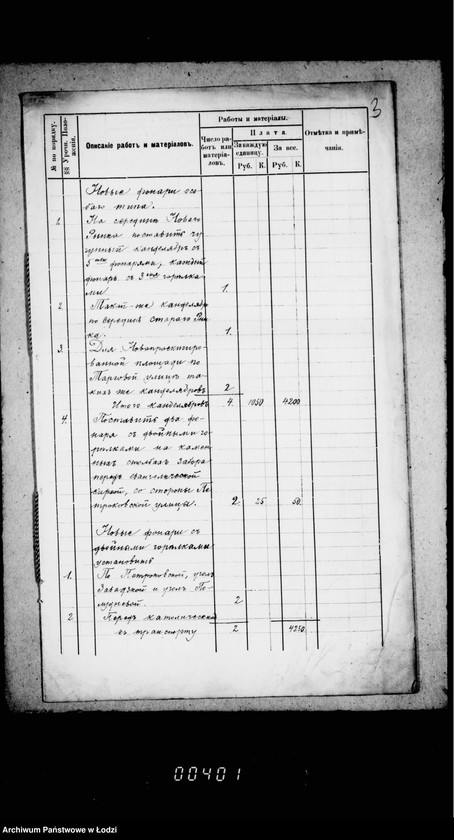 3
№ по порядку.
§§ Урочн. Положенія.
Описаніе работъ и матеріаловъ.
Работы и матеріалы.
Число работъ или матеріаловъ.
Плата
За каждую единицу.
За все.
Руб. К. Руб. К.
Отмѣтка и примѣчанія.
Новые фонари осо-
баго типа.
1. На серединѣ Новаго
Рынка поставить чу-
гунный канделябръ съ
5тью фонарями, каждый
фонарь съ 3мя горѣлка-
ми 1.
2. Такой же канделябръ
по серединѣ стараго Рын-
ка. 1.
3. Для Новопроектиро-
ванной площади по
Торговой улицѣ та-
кихъ же канделябровъ 2
Итого канделябровъ 4. 1050 4200
4. Поставить два фо-
наря съ двойными го-
рѣлками на камен-
ныхъ столбахъ забора
передъ евангелической
кирхой, со стороны Пе-
троковской улицы. 2. 25 50.
Новые фонари съ
двойными горѣлками
установить
1. По Петроковской, уголъ
Завадзкой и уголъ
2
2 Передъ католическ
къ транспорту 2 4250
00401
Archiwum Państwowe w Łodzi